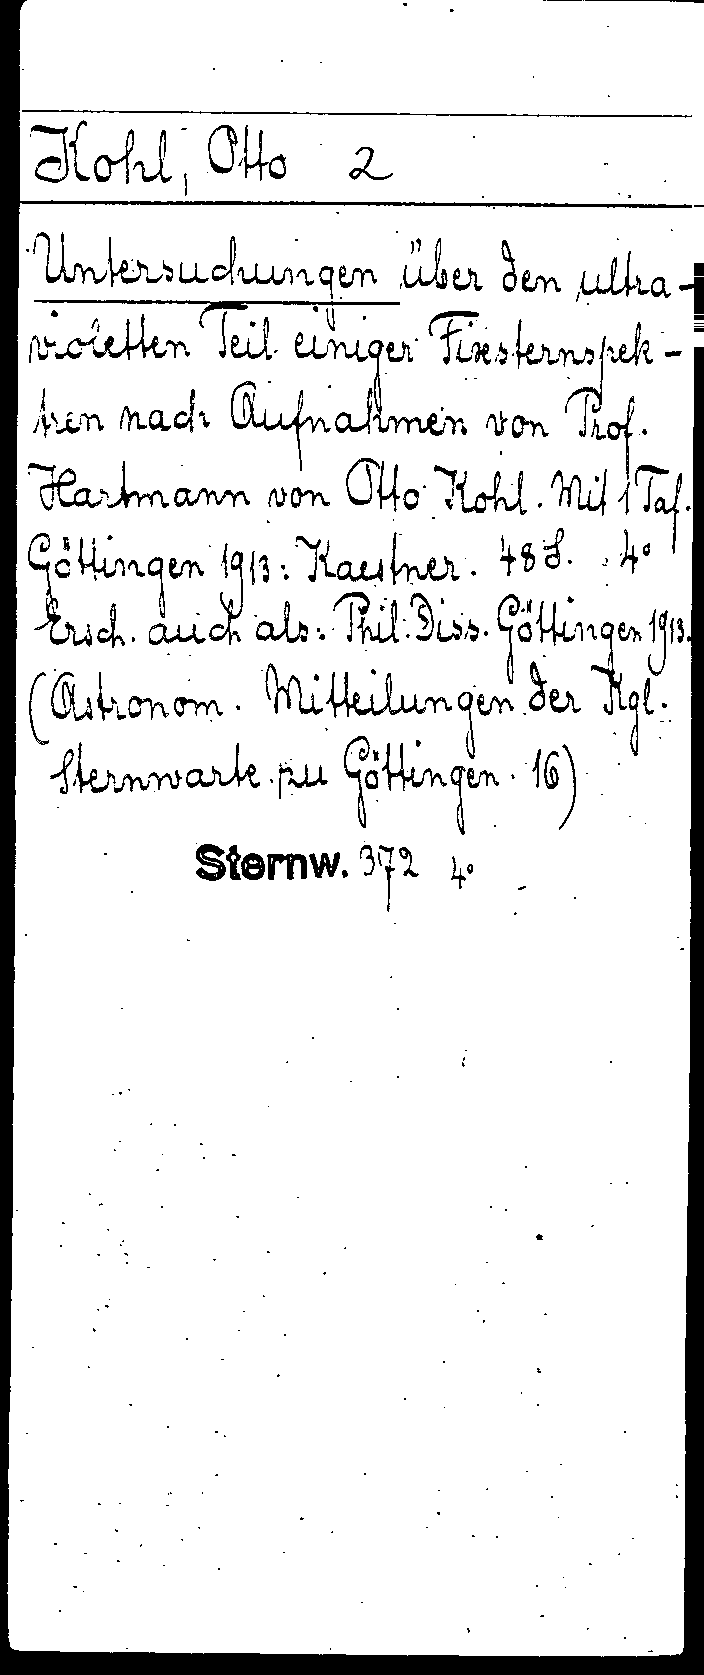 Kohl, Otto 2
Untersuchungen über den ultra-
violetten Teil einiger Fixsternspek-
tren nach Aufnahmen von Prof.
Hartmann von Otto Kohl. Mit 1 Taf.
Göttingen 1913: Kaestner. 48 S. 4°
Ersch. auch als: Phil. Diss. Göttingen 1913.
(Astronom. Mitteilungen der Kgl.
Sternwarte zu Göttingen. 16)
Sternw. 372 4°